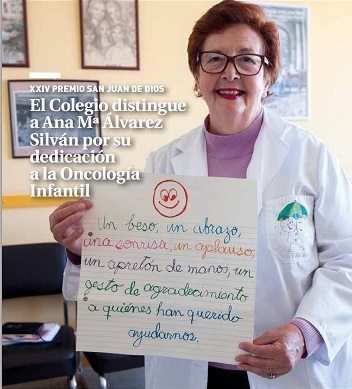 XXIV PREMIO SAN JUAN DE DIOS
El Colegio distingue
a Ana Mª Álvarez
Silván por su
dedicación
a la Oncología
Infantil
Un beso, un abrazo,
una sonrisa, un aplauso,
un apretón de mano, un
gesto de agradecimiento
a quiénes han querido
ayudarnos.